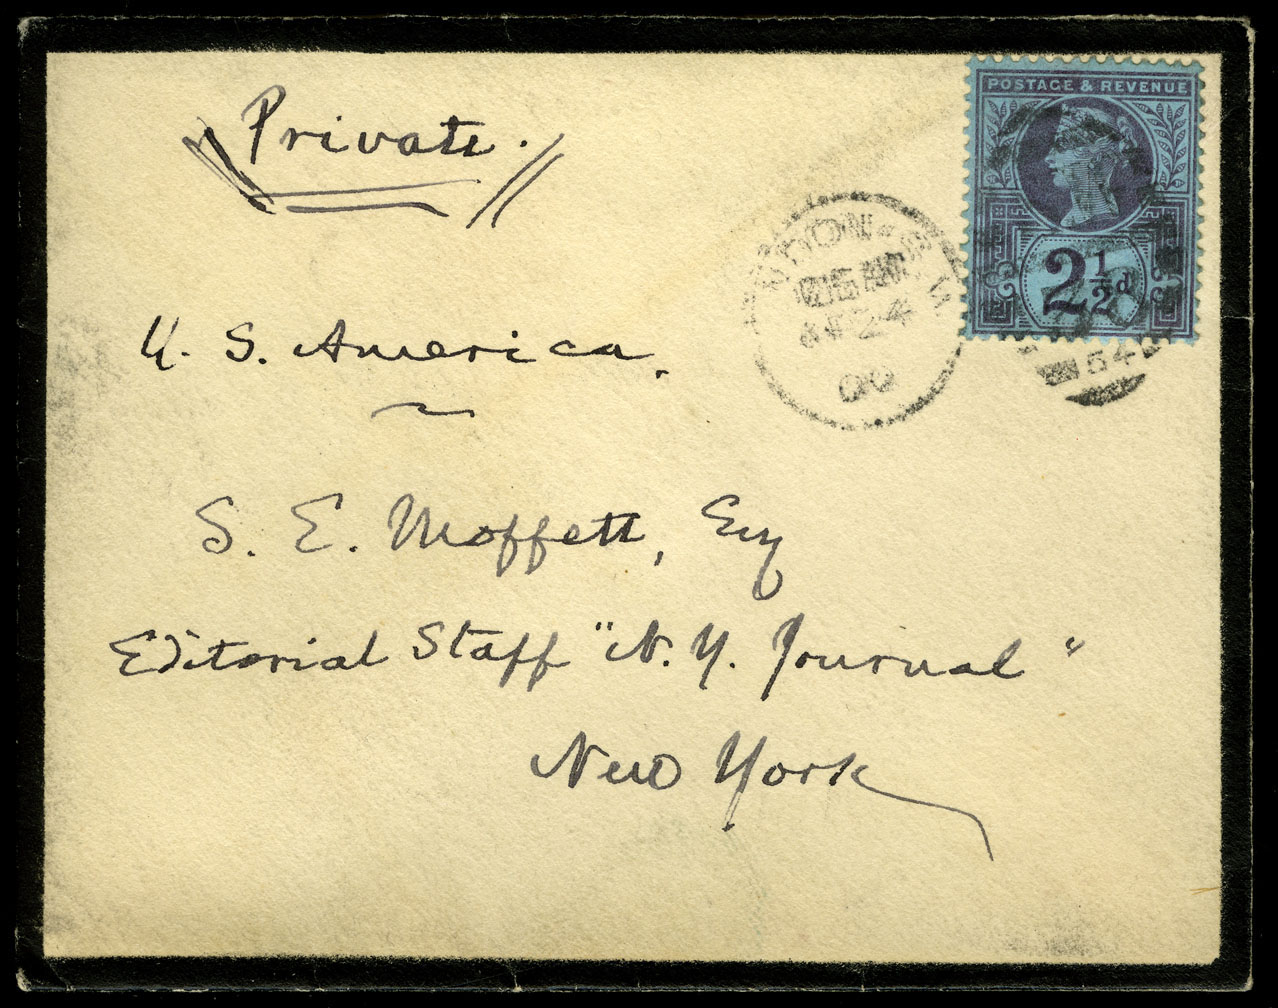 Private.
POSTAGE & REVENUE
2½d
24
00
54
U. S. America.
S. E. Moffett, Esq
Editorial Staff "N. Y. Journal"
New York